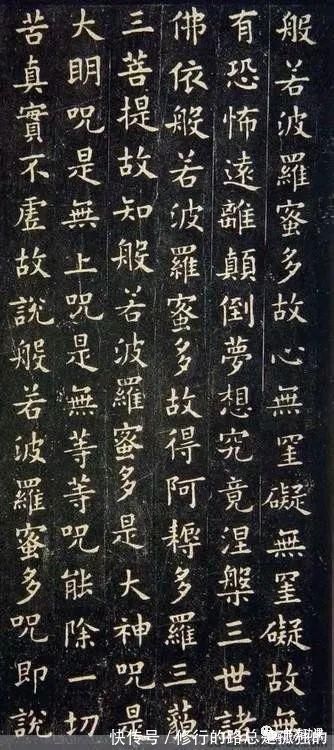 般若波羅蜜多故心無罣礙無罣礙故無
有恐怖遠離顛倒夢想究竟涅槃三世諸
佛依般若波羅蜜多故得阿耨多羅三藐
三菩提故知般若波羅蜜多是大神呪是
大明呪是無上呪是無等等呪能除一切
苦真實不虛故說般若波羅蜜多呪即說
快传号 / 修行的路总是孤独的